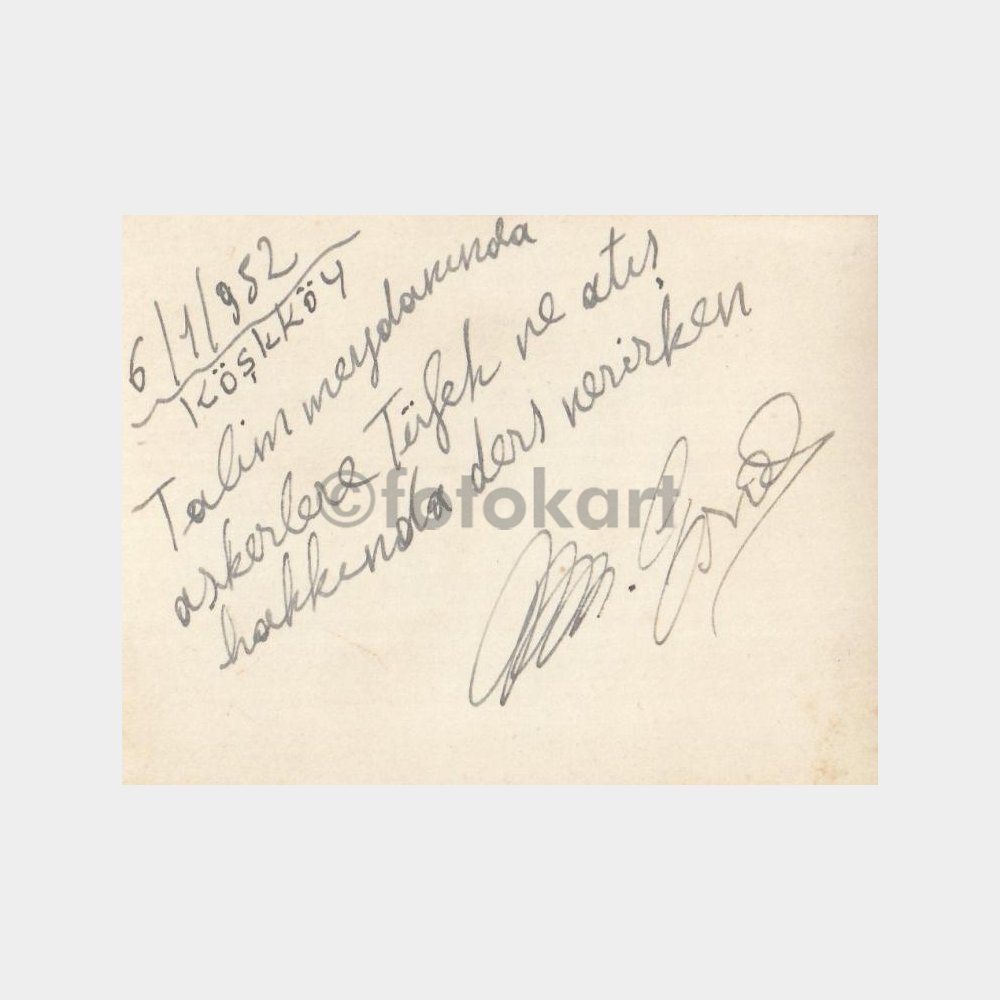 6/1/952
KÖŞKKÖY
Talim meydanında
askerlere Tüfek ve atış
hakkında ders verirken
©fotokart
M.